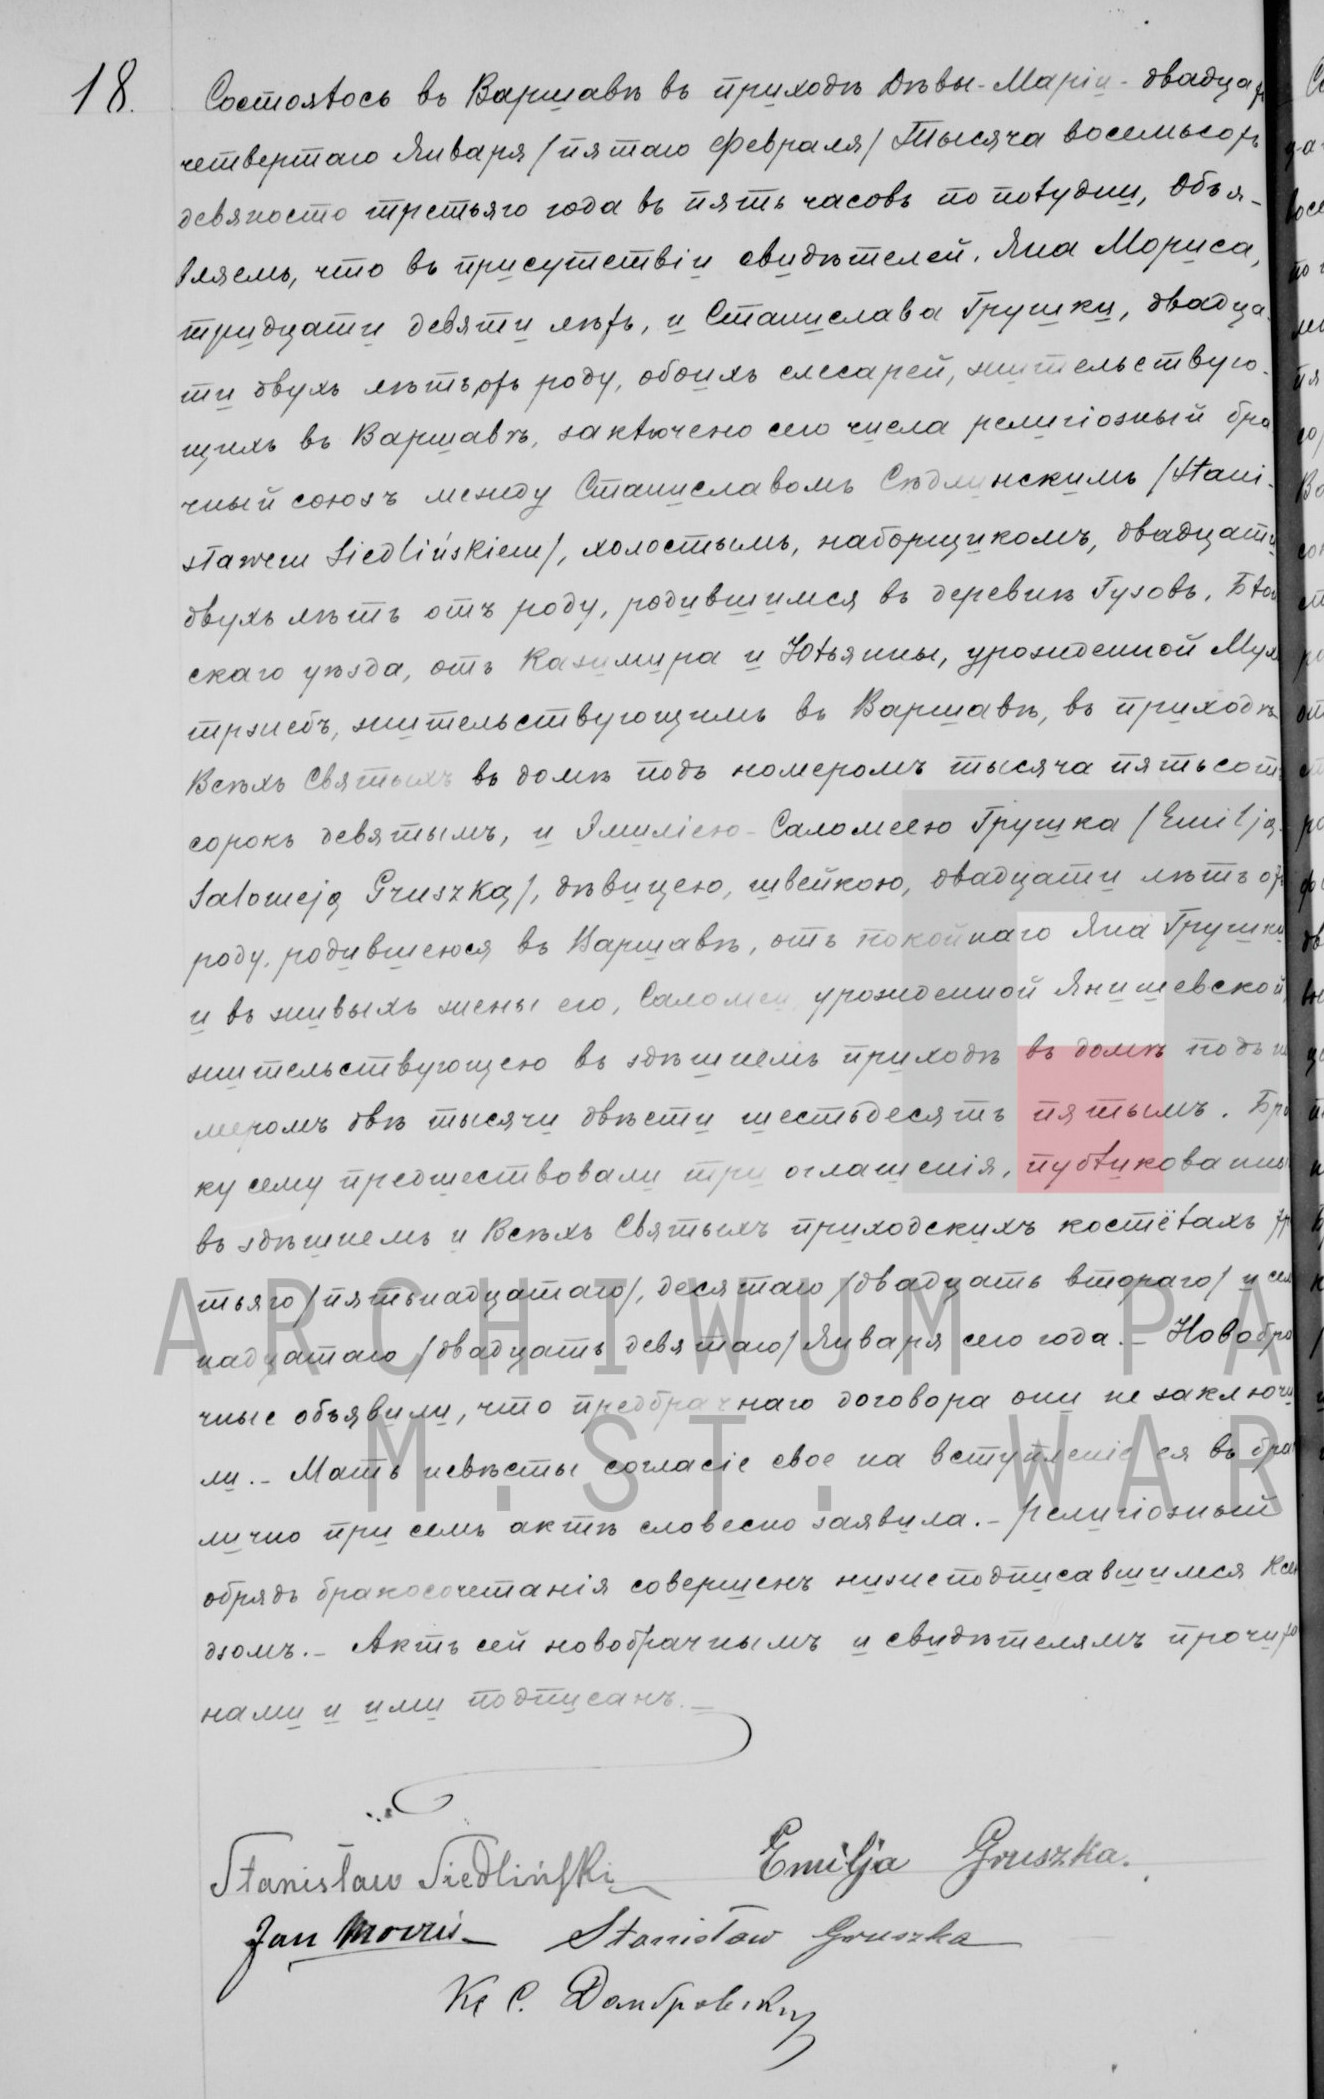 18.
Состоялось въ Варшавѣ въ приходѣ Дѣвы-Маріи - двадцать
четвертаго Января /пятаго Февраля/ Тысяча восемьсотъ
девяносто третьяго года въ пять часовъ по полудни, Объя-
вляемъ, что въ присутствіи свидѣтелей, Яна Мориса,
тридцати девяти лѣтъ, и Станислава Грушки, двадца-
ти двухъ лѣтъ отъ роду, обоихъ слесарей, жительствую-
щихъ въ Варшавѣ, заключено сего числа религіозный бра
чный союзъ между Станиславомъ Сѣдлинскимъ /Stani-
sławem Siedlińskiem/, холостымъ, наборщикомъ, двадцати
двухъ лѣтъ отъ роду, родившимся въ деревнѣ Гузовъ,
скаго уѣзда, отъ Казимира и Юльянны, урожденной
жительствующимъ въ Варшавѣ, въ приходѣ
Всѣхъ Святыхъ въ домѣ подъ номеромъ тысяча пятьсотъ
сорокъ девятымъ, и Эмиліею-Саломеею Грушка /Emilją-
Salomeją Gruszką/, дѣвицею, швейкою, двадцати лѣтъ отъ
роду, родившеюся въ Варшавѣ, отъ покойнаго Яна Грушки
и въ живыхъ жены его, Саломеи урожденной Янишевской
жительствующею въ здѣшнемъ приходѣ въ домѣ подъ но
меромъ двѣ тысячи двѣсти шестьдесятъ пятымъ. Бра
ку сему предшествовали три оглашенія, публикованны
въ здѣшнемъ и Всѣхъ Святыхъ приходскихъ костёлахъ тре
тьяго /пятнадцатаго/, десятаго /двадцать втораго/ и сем
надцатаго /двадцать девятаго/ Января сего года. - Новобра
чные объявили, что предбрачнаго договора они не заключи
ли. - Мать невѣсты согласіе свое на вступленіе ея въ бра
лично при семъ актѣ словесно заявила. - Религіозный
обрядъ бракосочетанія совершенъ нижеподписавшимся Ксен
дзомъ. - Актъ сей новобрачнымъ и свидѣтелямъ прочита
нами и ими подписанъ. -
Stanisław Siedliński Emilja Gruszka.
Jan Morris Stanisław Gruszka
Кс С. Домбровскій
ARCHIWUM PA
M.ST. WAR